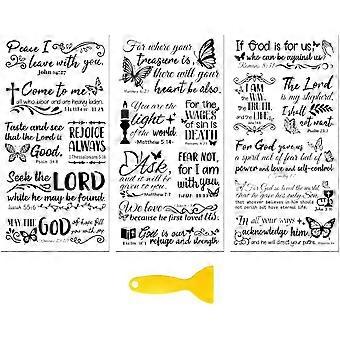 Peace I
leave with you.
John 14:27
Come to me
all who labor and are heavy laden.
Matthew 11:28
Taste and see
that the Lord is
Good.
REJOICE
ALWAYS
1 Thessalonians 5:16
Seek the LORD
while he may be found.
Isaiah 55:6
MAY THE
GOD of hope fill
you with joy
For where your
treasure is,
there will your
heart be also.
Matthew 6:21
You are the
light
of the world.
-Matthew 5:14-
For the
WAGES of
sin is
DEATH
Romans 6:23
Ask
and it will be
given to you.
FEAR NOT,
for I am
with you
Isaiah 41:10
We love
because he first loved us.
God is our
refuge and strength
If God is for us,
who can be against us
Romans 8:31
I AM
THE WAY,
THE TRUTH,
and THE
LIFE
The Lord
is my shepherd,
I shall
not want
Psalm 23:1
For God gave us
a spirit not of fear but of
power and love and self-control
For God so loved the world,
that he gave his only Son,
that whoever believes in him should
not perish but have eternal life.
John 3:16
In all your ways
acknowledge him
and he will direct your paths.